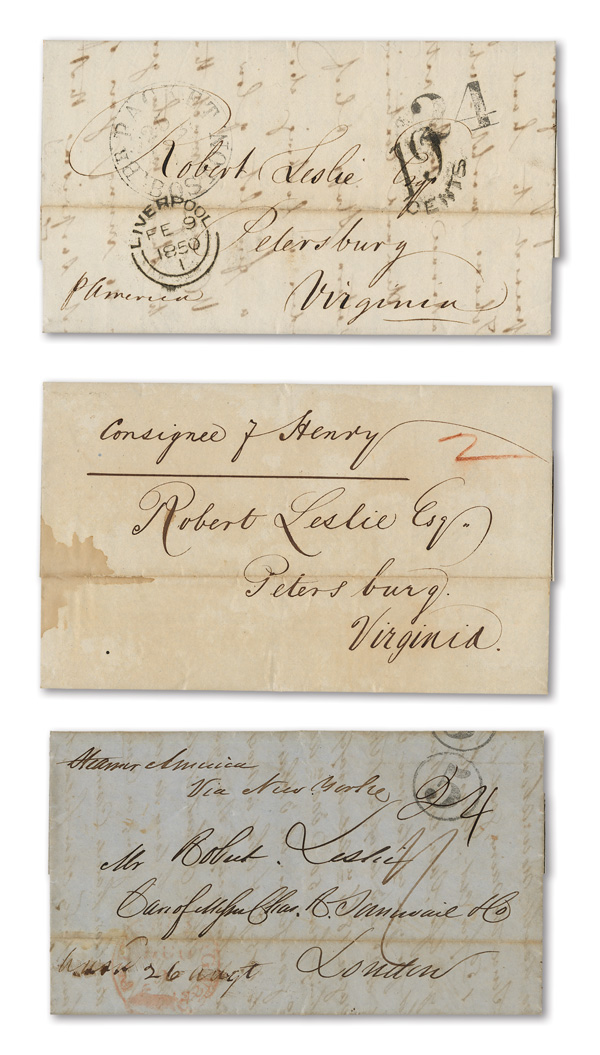 BR. PACKET
BOS
24
19
CENTS
Robert Leslie Esq
LIVERPOOL
FE 9
1850
1
Petersburg
p America
Virginia
Consignee p Henry
2
Robert Leslie Esq.
Petersburg.
Virginia.
Steamer America
Via New Yorke
5
24
Mr Robert Leslie
Care of Messrs Chas. &Co
26
London